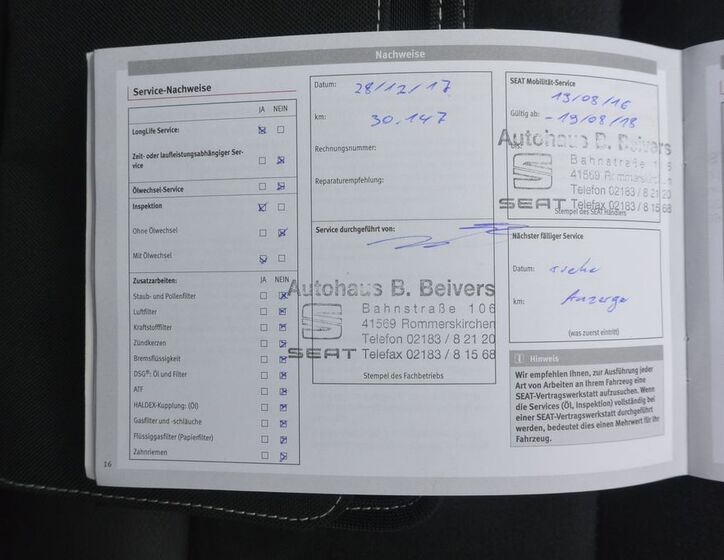 Nachweise
Service-Nachweise
JA NEIN
LongLife Service:
Zeit- oder laufleistungsabhängiger Ser-
vice
Ölwechsel-Service
Inspektion
Ohne Ölwechsel
Mit Ölwechsel
Zusatzarbeiten: JA NEIN
Staub- und Pollenfilter
Luftfilter
Kraftstofffilter
Zündkerzen
Bremsflüssigkeit
DSG®: Öl und Filter
ATF
HALDEX-Kupplung: (Öl)
Gasfilter und -schläuche
Flüssiggasfilter (Papierfilter)
Zahnriemen
16
Datum: 28/12/17
km: 30.147
Rechnungsnummer:
Reparaturempfehlung:
Service durchgeführt von:
Autohaus B. Beivers
Bahnstraße 106
41569 Rommerskirchen
Telefon 02183 / 8 21 20
SEAT Telefax 02183 / 8 15 68
Stempel des Fachbetriebs
SEAT Mobilität-Service
Gültig ab: 19/08/16
- 19/08/18
Autohaus B. Beivers
Bahnstraße 106
41569 Rommerskirchen
Telefon 02183 / 8 21 20
SEAT Telefax 02183 / 8 15 68
Stempel des SEAT Händlers
Nächster fälliger Service
Datum: siehe
km: Anzeige
(was zuerst eintritt)
i Hinweis
Wir empfehlen Ihnen, zur Ausführung jeder
Art von Arbeiten an Ihrem Fahrzeug eine
SEAT-Vertragswerkstatt aufzusuchen. Wenn
die Services (Öl, Inspektion) vollständig bei
einer SEAT-Vertragswerkstatt durchgeführt
werden, bedeutet dies einen Mehrwert für Ihr
Fahrzeug.